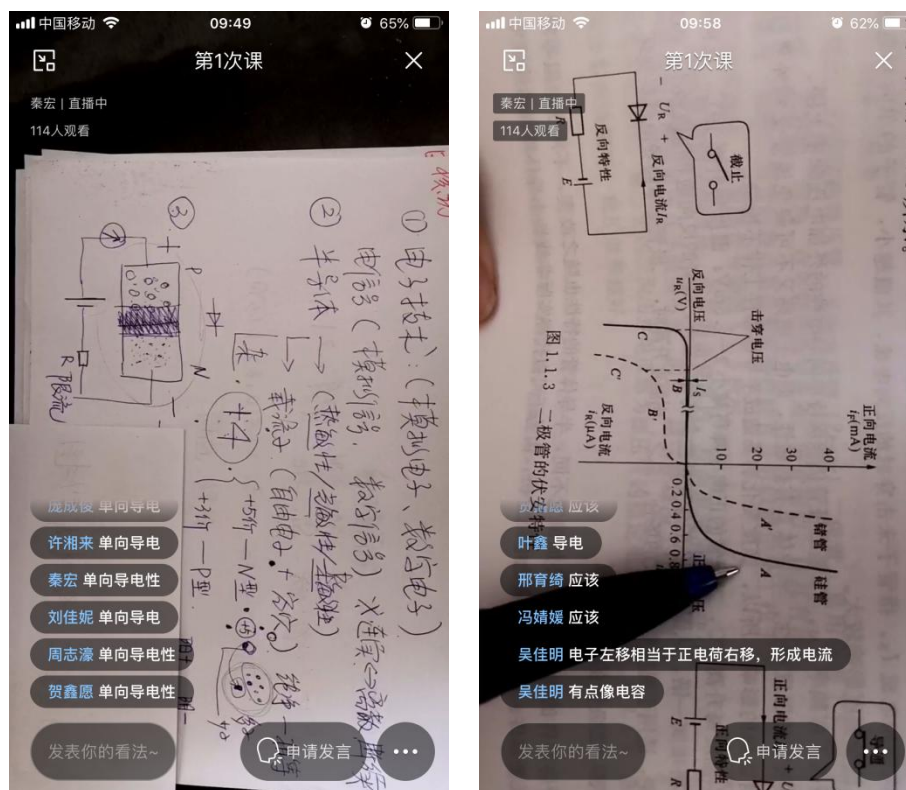 中国移动
09:49
65%
第1次课
秦宏 | 直播中
114人观看
① 电子技术:(模拟电子、数字电子)
电信号(模拟信号,数字信号)
② 半导体 → (热敏性/光敏性/掺杂性)
载流子(自由电子+空穴)
+4
+5价—N型
+3价—P型
+5
③
+
P
N
−
R 限流
许湘来 单向导电
秦宏 单向导电性
刘佳妮 单向导电
周志濠 单向导电性
贺鑫愿 单向导电性
发表你的看法~
申请发言
中国移动
09:58
62%
第1次课
秦宏 | 直播中
114人观看
截止
− UR +
反向电流IR
R
反向特性
E
正向电流
iF(mA)
40
30
20
10
击穿电压
反向电压
uR(V)
锗管
硅管
A'
A
IS
B
B'
C
C'
0.2 0.4 0.6 0.8
反向电流
iR(μA)
图 1.1.3 二极管的伏安特
叶鑫 导电
邢育绮 应该
冯婧媛 应该
吴佳明 电子左移相当于正电荷右移,形成电流
吴佳明 有点像电容
正向电流
正向特性
E
R
发表你的看法~
申请发言